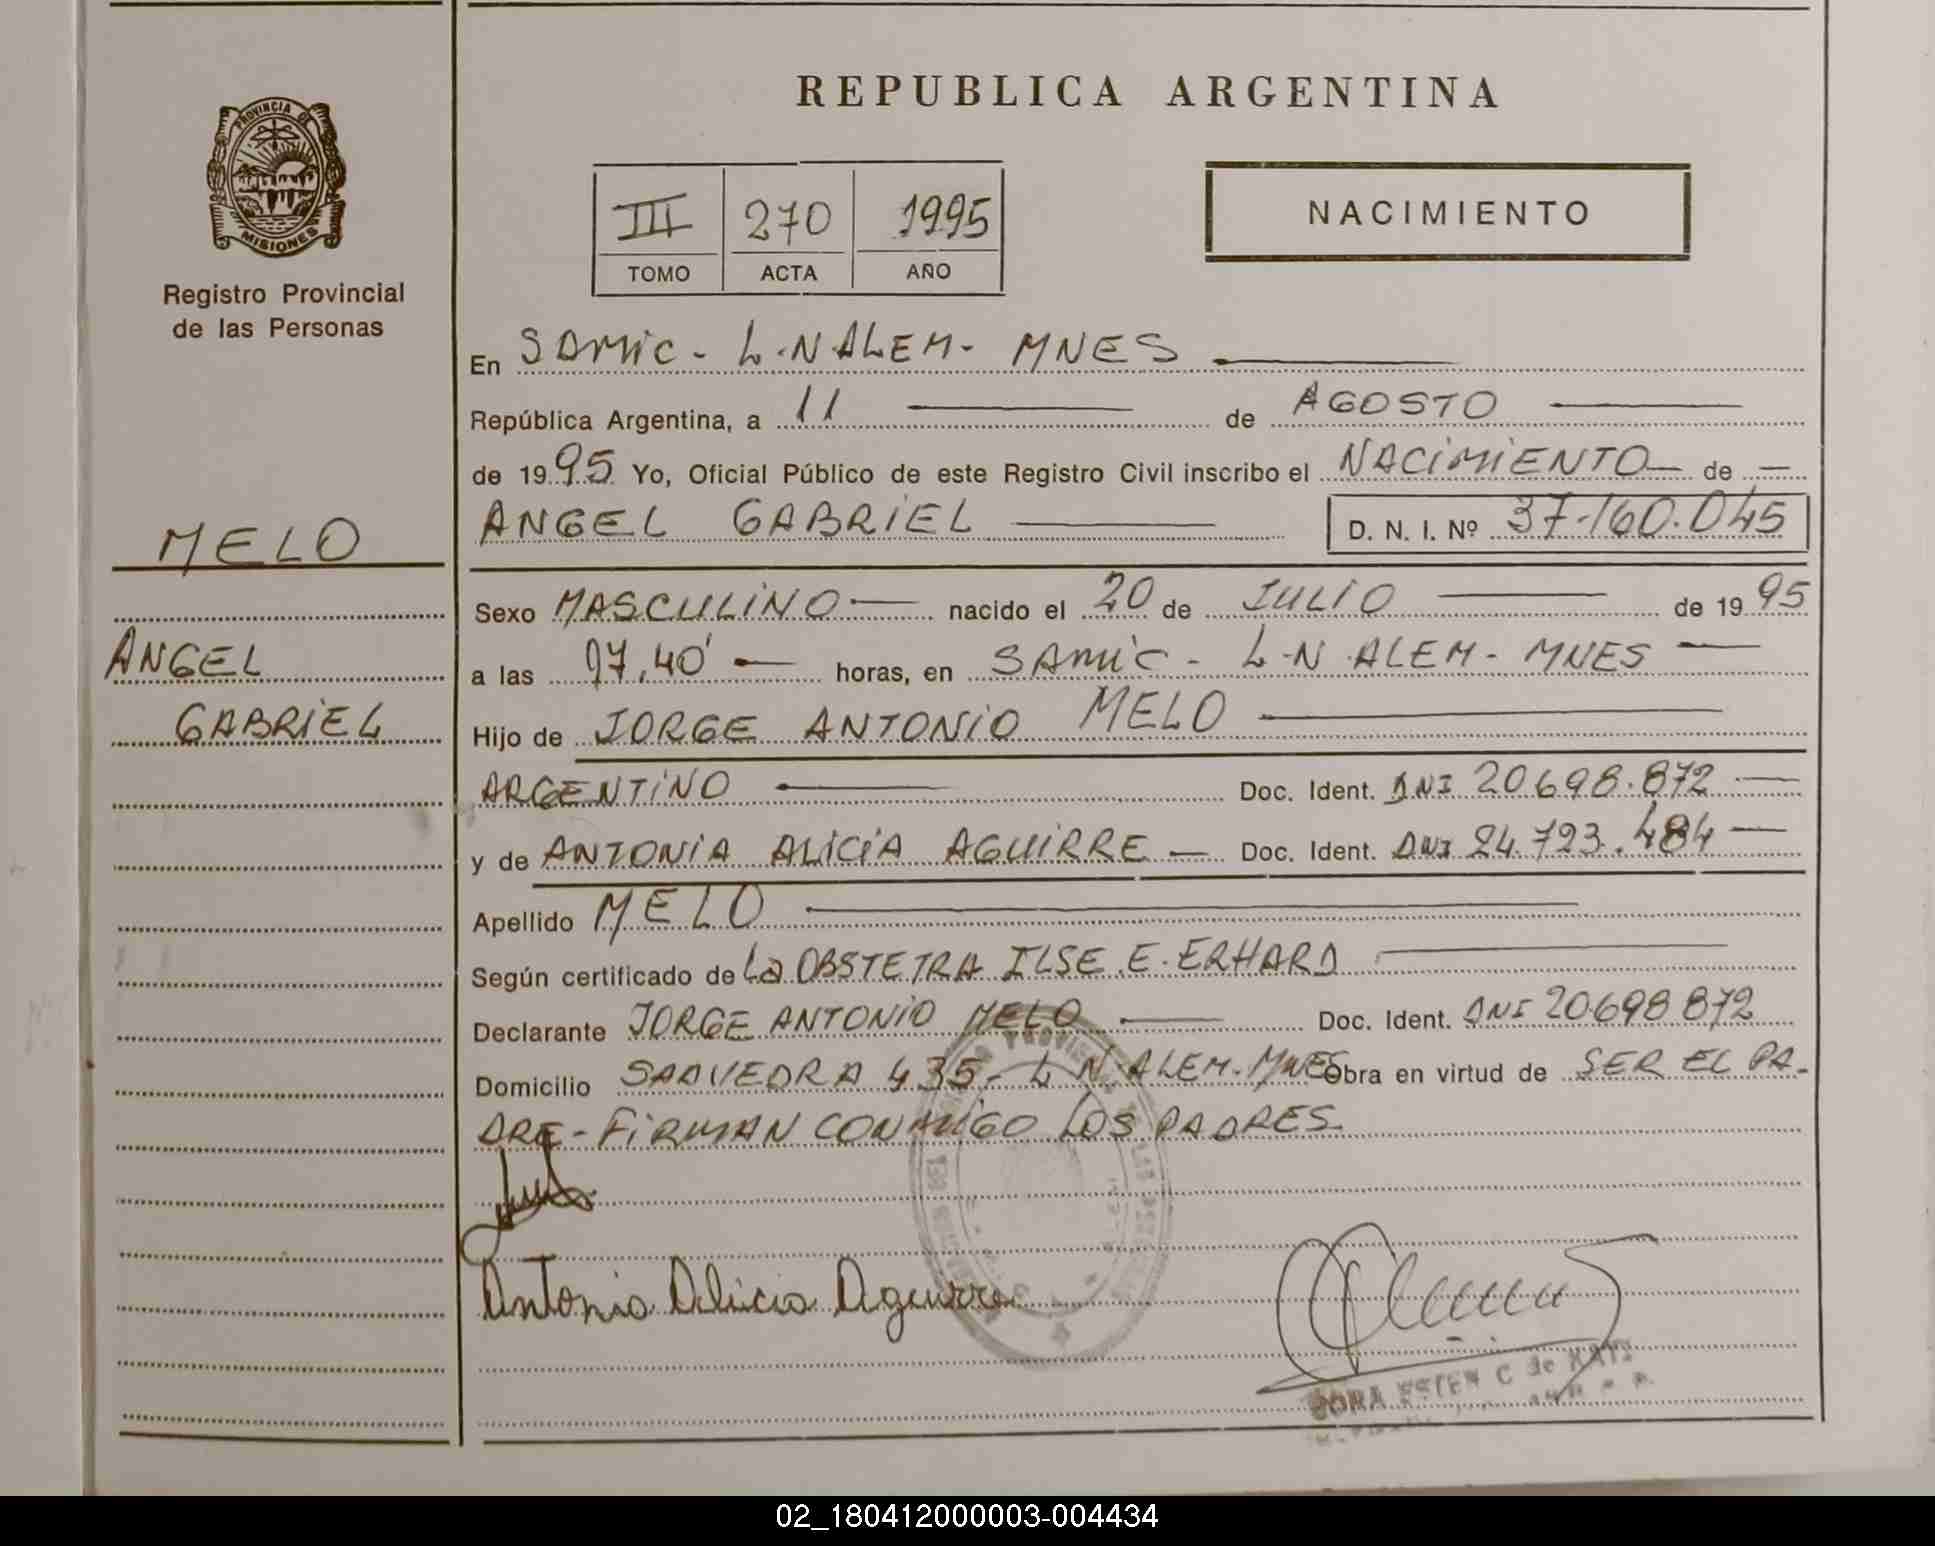 REPUBLICA ARGENTINA
PROVINCIA DE
MISIONES
Registro Provincial
de las Personas
III 270 1995
TOMO ACTA AÑO
NACIMIENTO
En SAMIC - L.N.ALEM - MNES
República Argentina, a 11 de AGOSTO
de 1995 Yo, Oficial Público de este Registro Civil inscribo el NACIMIENTO de
ANGEL GABRIEL D. N. I. Nº 37.160.045
MELO
ANGEL
GABRIEL
Sexo MASCULINO nacido el 20 de JULIO de 1995
a las 17,40 horas, en SAMIC - L.N.ALEM - MNES
Hijo de JORGE ANTONIO MELO
ARGENTINO Doc. Ident. DNI 20698.872
y de ANTONIA ALICIA AGUIRRE Doc. Ident. DNI 24.723.484
Apellido MELO
Según certificado de La OBSTETRA ILSE.E.ERHARD
Declarante JORGE ANTONIO MELO Doc. Ident. DNI 20698872
Domicilio SAAVEDRA 435 - L.N.ALEM - MNES Obra en virtud de SER EL PA-
DRE - FIRMAN CONMIGO LOS PADRES
Antonia Alicia Aguirre
C de
02_180412000003-004434